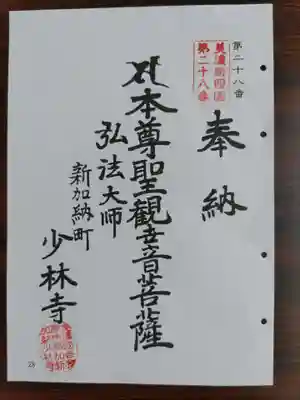 第二十八番
美濃新四国
第二十八番
奉納
本尊聖観世音菩薩
弘法大師
新加納町
少林寺
28